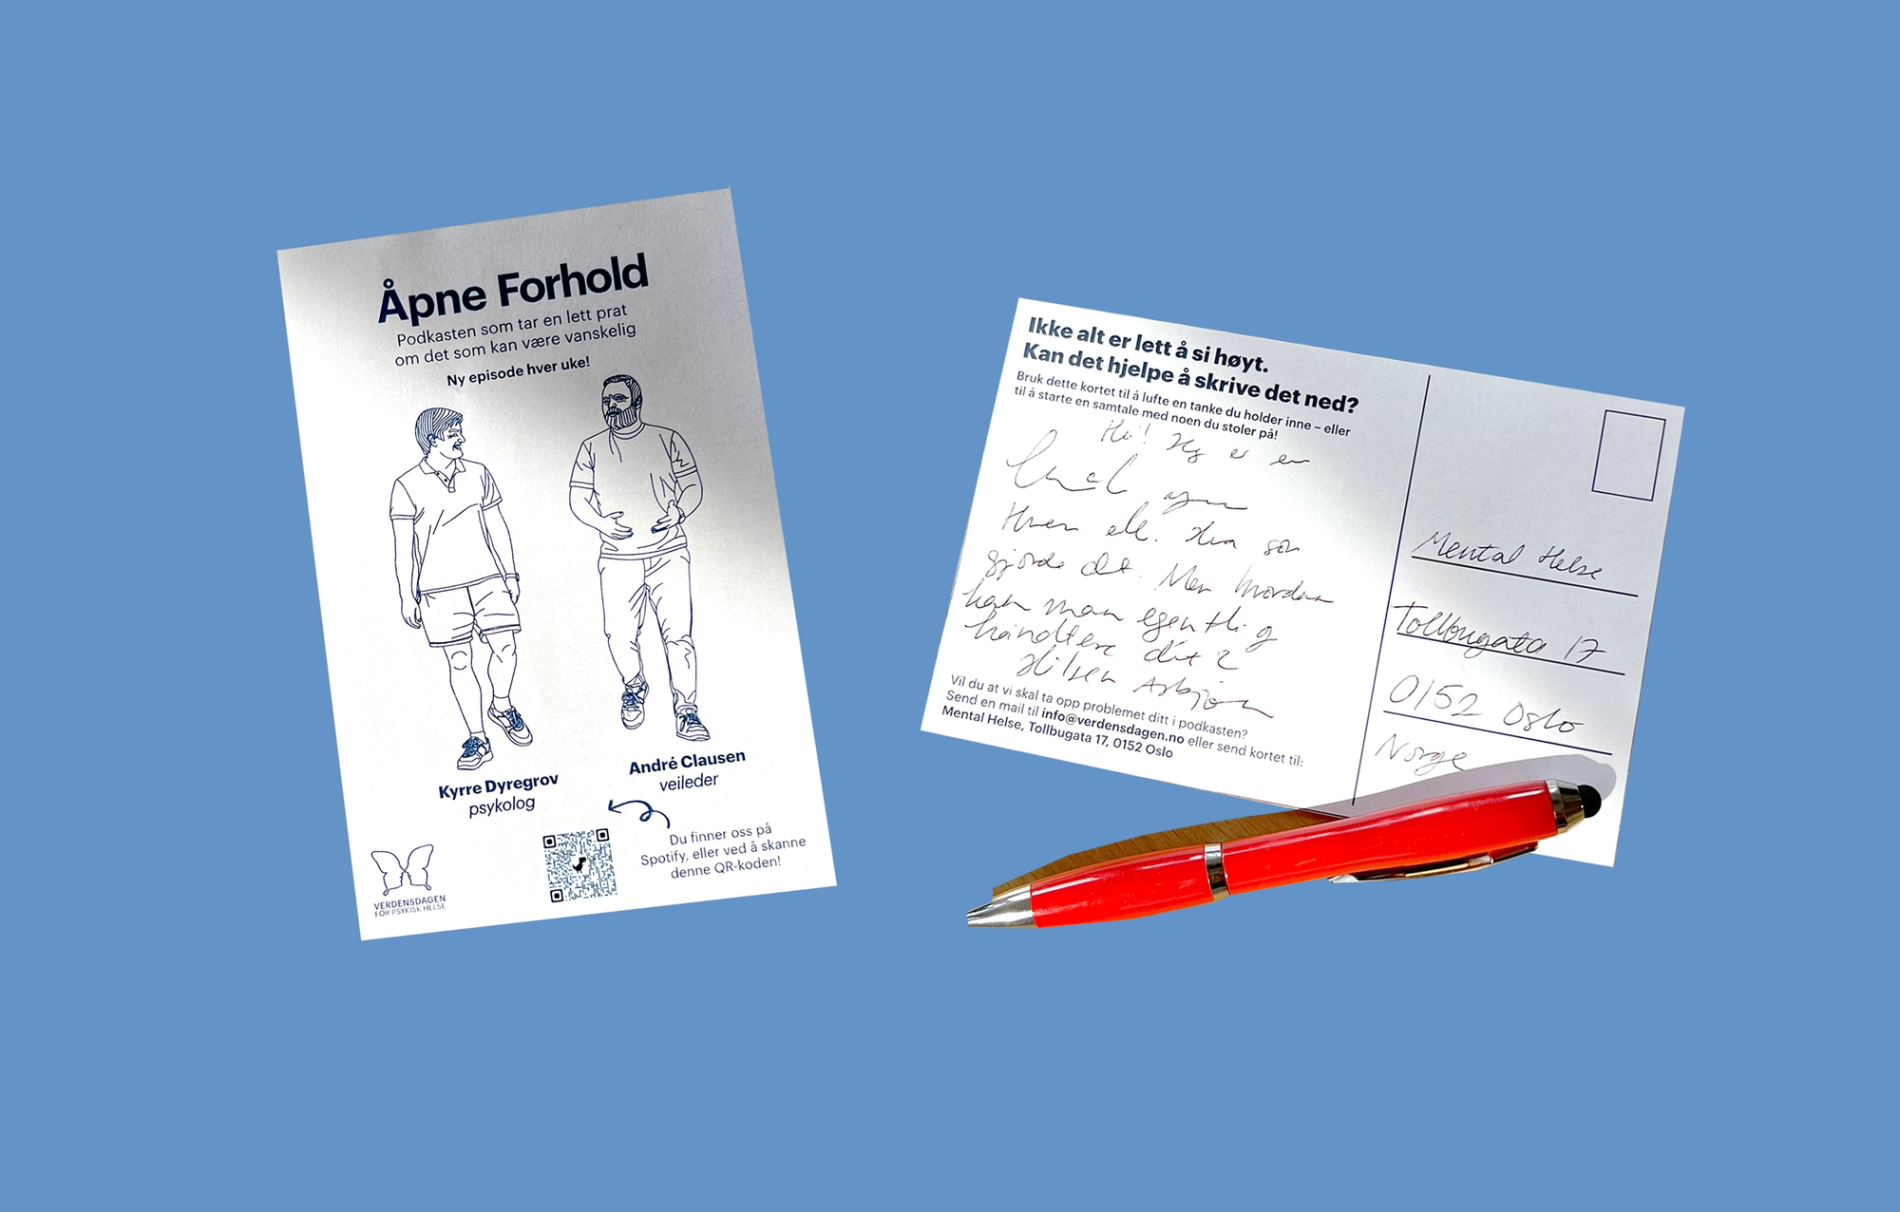 Åpne Forhold
Podkasten som tar en lett prat
om det som kan være vanskelig
Ny episode hver uke!
Kyrre Dyregrov
psykolog
André Clausen
veileder
Du finner oss på
Spotify, eller ved å skanne
denne QR-koden!
VERDENSDAGEN
FOR PSYKISK HELSE
Ikke alt er lett å si høyt.
Kan det hjelpe å skrive det ned?
Bruk dette kortet til å lufte en tanke du holder inne – eller
til å starte en samtale med noen du stoler på!
Hei! Jeg er en
Hvem ell. Hva som
gjorde det. Men hvordan
kan man egentlig
håndtere det?
Hilsen Asbjørn
Vil du at vi skal ta opp problemet ditt i podkasten?
Send en mail til info@verdensdagen.no eller send kortet til:
Mental Helse, Tollbugata 17, 0152 Oslo
Mental Helse
Tollbugata 17
0152 Oslo
Norge